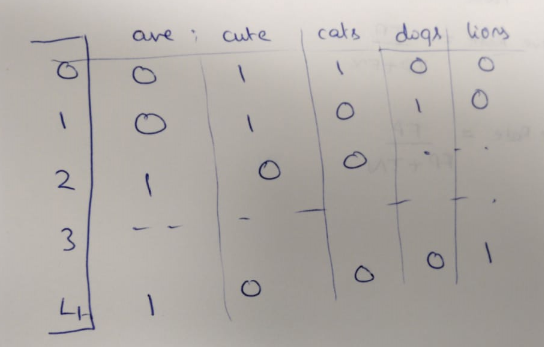 are cute cats dogs lions
0 0 1 1 0 0
1 0 1 0 1 0
2 1 0 0 - .
3 -- - - - - .
4 1 0 0 0 1